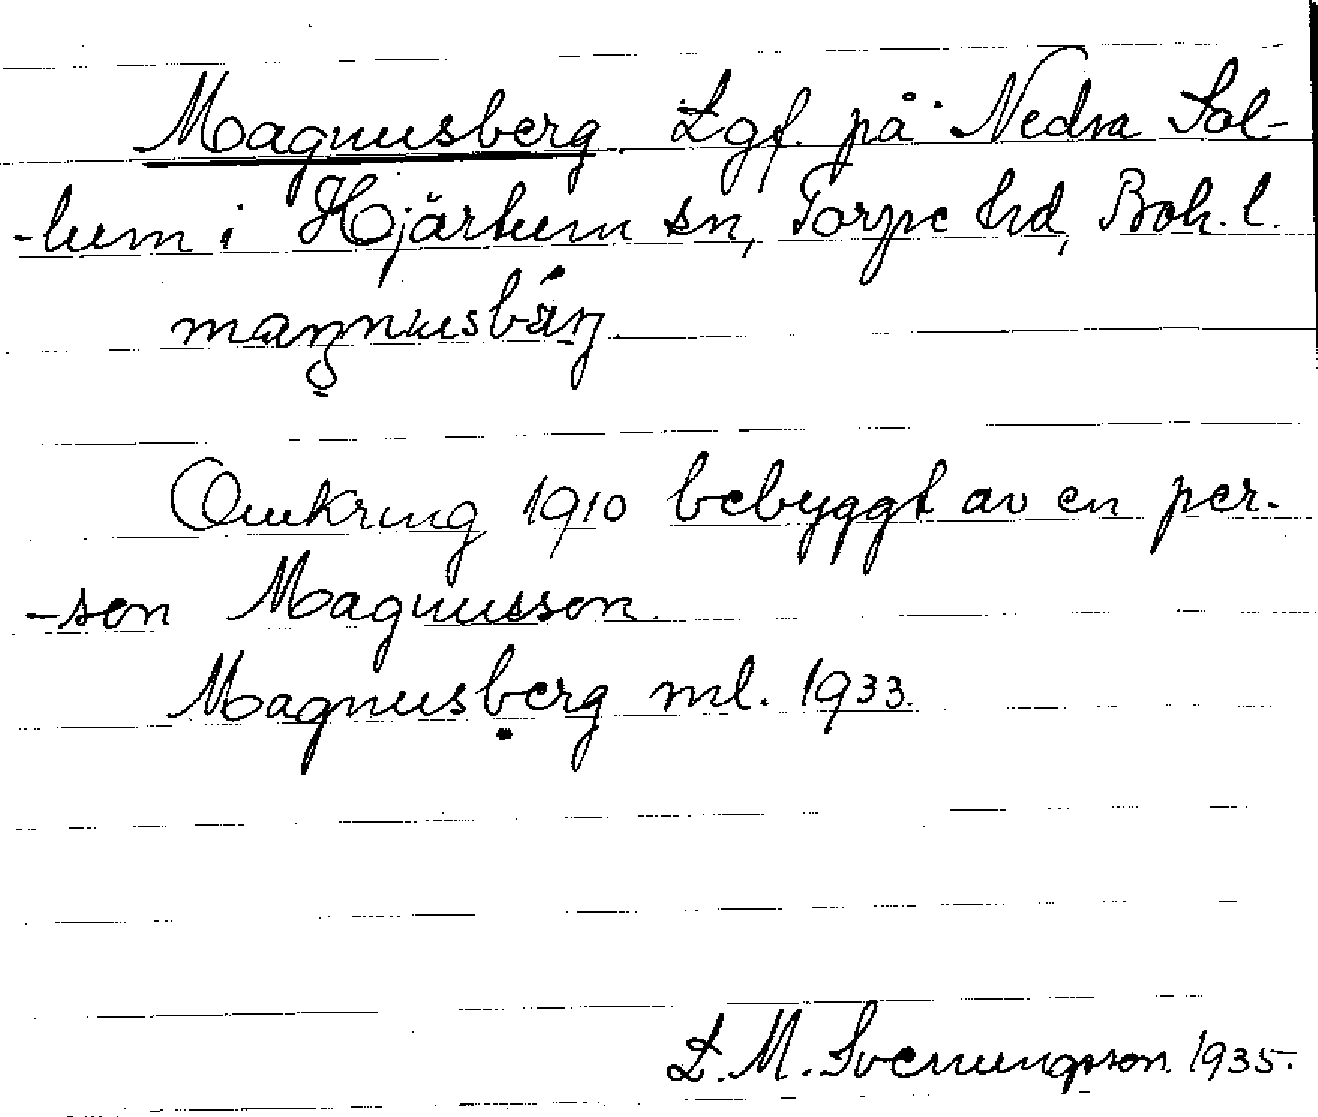 Magnusberg. Lgf. på Nedra Sol-
-lum i Hjärtum sn, Torpe hd, Boh. l.
maŋnusbärj
Omkring 1910 bebyggt av en per-
-son Magnusson.
Magnusberg ml. 1933.
L. M. Svenungsson 1935.